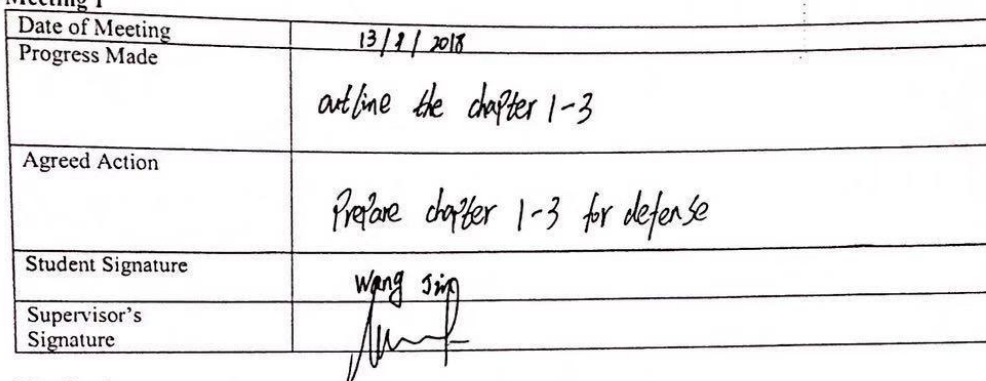 Meeting 1
Date of Meeting
13/9/2018
Progress Made
outline the chapter 1-3
Agreed Action
Prepare chapter 1-3 for defense
Student Signature
Wang Jing
Supervisor's
Signature